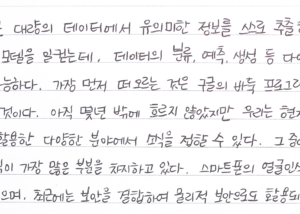 대량의 데이터에서 유의미한 정보를 스스로 추출
모델을 일컫는데, 데이터의 분류, 예측, 생성 등 다
능하다. 가장 먼저 떠오르는 것은 구글의 바둑 프로그
것이다. 아직 몇년 밖에 흐르지 않았지만 우리는 현
활용한 다양한 분야에서 소식을 접할 수 있다. 그 중
식이 가장 많은 부분을 차지하고 있다. 스마트폰의 얼굴인식
으며, 최근에는 보안을 결합하여 물리적 보안으로도 활용되